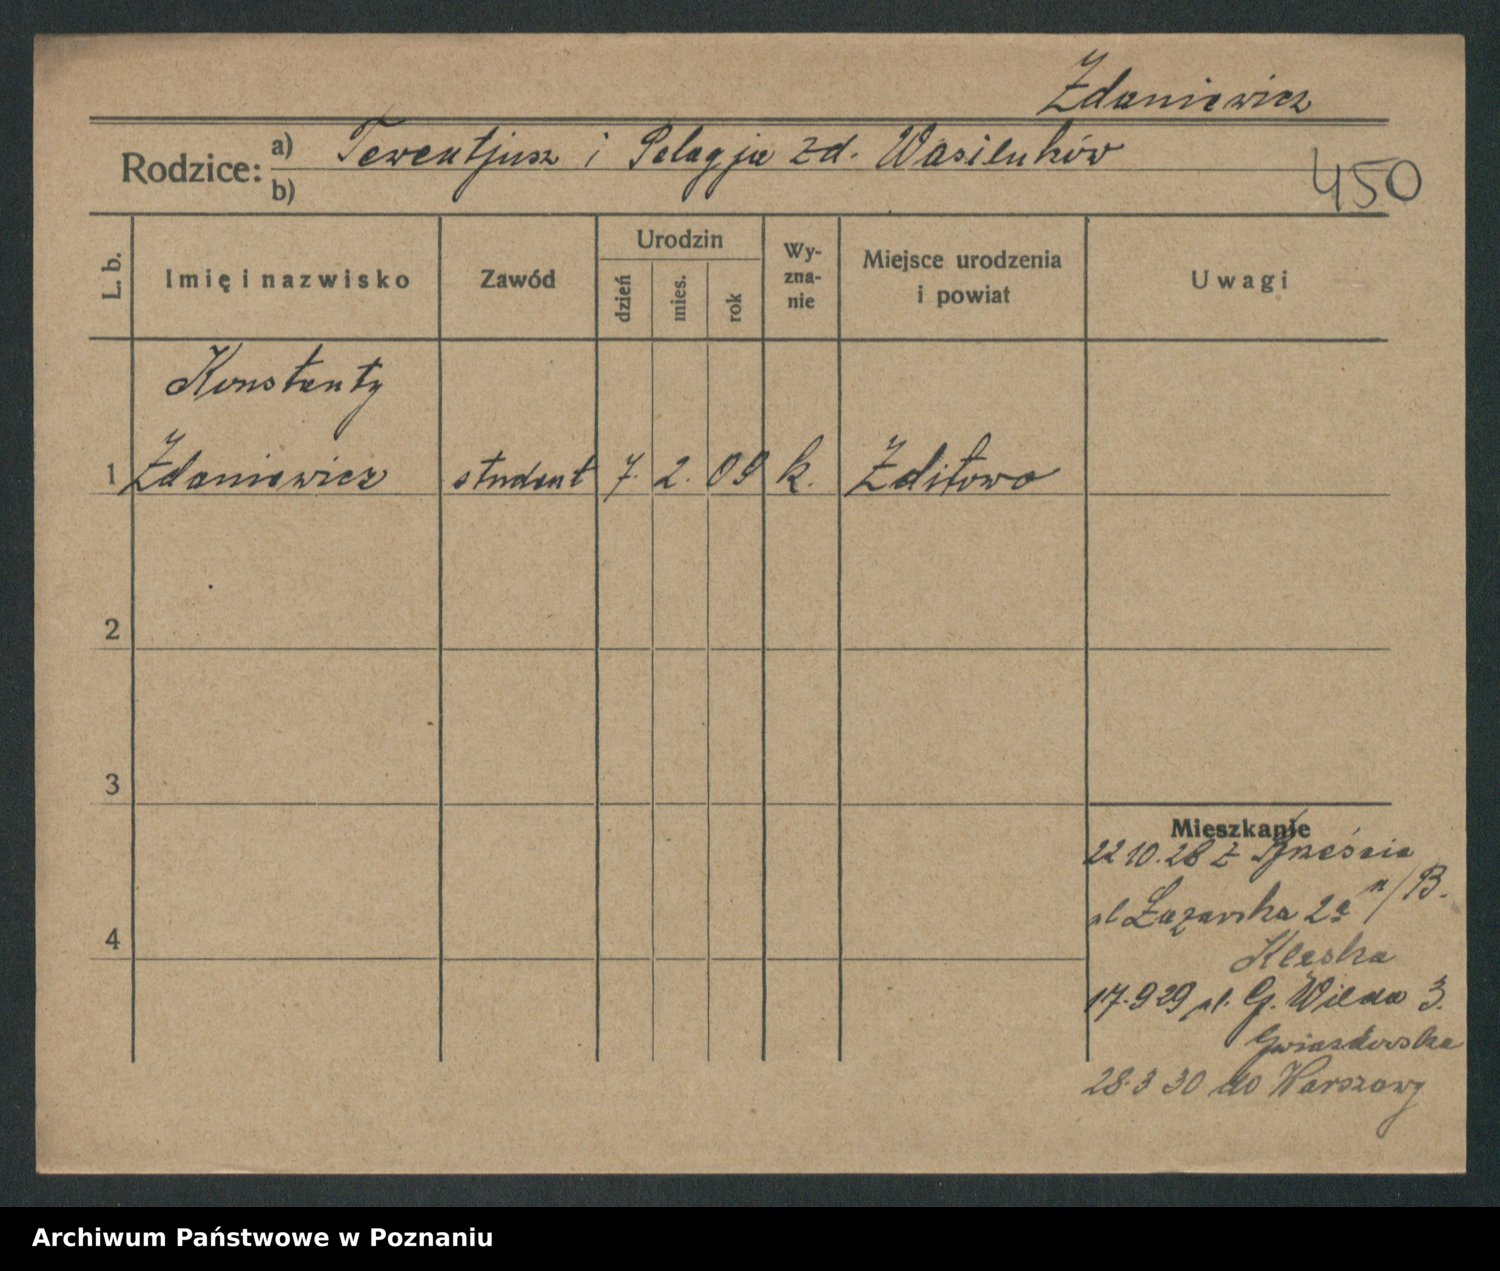 Zdaniewicz
Rodzice: a) Terentjusz i Pelagja zd. Wasiluków
b)
450
L. b.
Imię i nazwisko
Zawód
Urodzin
dzień
mies.
rok
Wy-
zna-
nie
Miejsce urodzenia
i powiat
Uwagi
Konstanty
1 Zdaniewicz student 7. 2. 09 k. Zditowo
2
3
Mieszkanie
22 10. 28 z Brześcia n/B.
ul Łazarska 2a
4
Kleska
17. 9 29 ul. G. Wilda 3.
Gwiazdowska
28. 3 30 do Warszawy
Archiwum Państwowe w Poznaniu